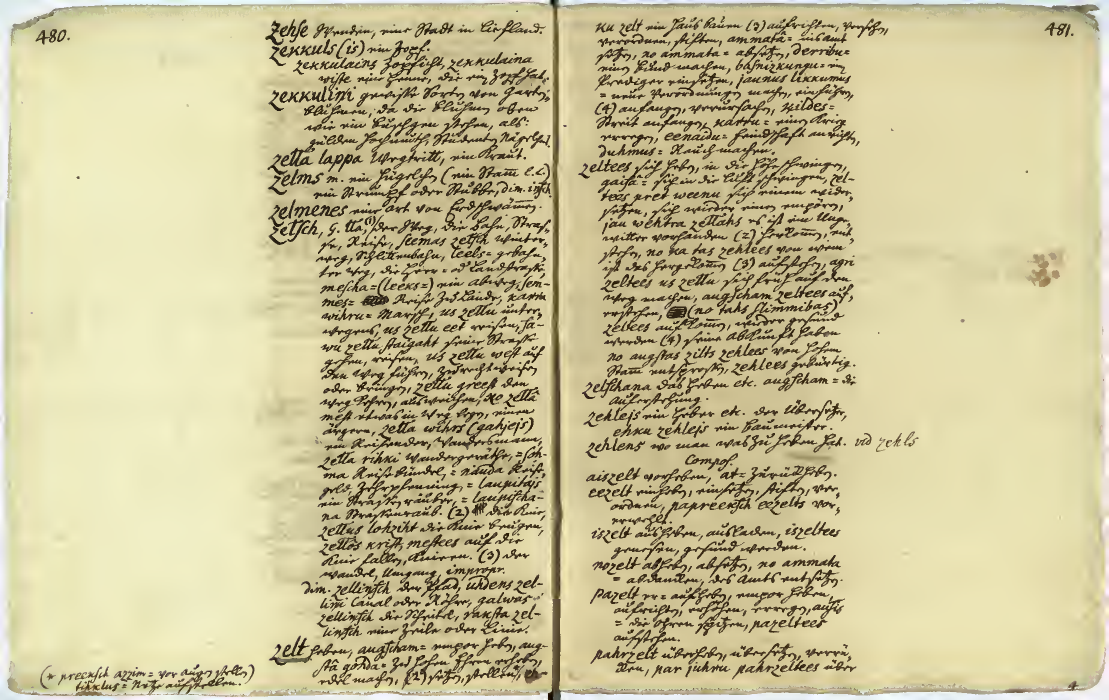 480.
Zehse Wenden, eine Stadt in Liefland.
zekkuls (is) ein Zopf.
zekkulains Zopficht, zekkulaina
wiste eine Henne, die ein Zopf hat.
zekkulini gewisse Sorten von Garten,
bluhmen, da die bluhmen oben
wie ein büschgen stehen, als:
gülden Hochmuth, Studenten Nägelch.
zetta lappa Wegtritt, ein Kraut.
zelms m. ein Hügelchen (ein Stam̃ l. c.)
ein Strumpf oder Stubbe, dim. insch
zelmenes eine art von Erdschwäm̃en.
zetsch, G. tta, der Weg, die bahn, Stras,
se, Reise, seemas zetsch winter,
weg, Schlittenbahn, leels= gebahn,
ter weg, die Heer= od Landstrasse
mescha= (leeks=) ein abweg, sem-
mes= Reise zu Lande, karra
wihru= Marsch, us zettu unter,
wegens, us zettu eet reisen, sa-
wu zettu staigaht seine Strasse
gehen, reisen, us zettu west auf
den Weg führen, zurecht weisen
oder bringen, zettu greest den
weg kehren, ausweichen, ko zettâ
mest etwas in Weg legen, einen
ärgern, zetta wihrs (gahjejs)
ein Reisender, Wandersmann,
zetta rihki Wandergeräthe, = soh-
ma Reise bündel, = nauda Reise
geld, Zehrpfenning, = laupitajs
ein Strassen räuber, = laupischa-
na Strassenraub. (2) die Knie,
zettus lohziht die Knie beugen,
zettôs krist, mestees auf die
Knie fallen, knieren. (3) der
wandel, Umgang, impropr.
dim. zellinsch der Pfad, uhdens zel-
lini Canal oder Röhre, galwas
zellinsch die Scheitel, raksta zel-
linsch eine Zeile oder Linie.
zelt heben, augscham= empor heben, aug-
stâ godda= zu hohen Ehren erheben,
edel machen, (2) setzen, stellen,
(* preeksch azzim= vor augen stellen)
tihklus= Netze aufstellen.
481.
ku zelt ein Haus bauen (3) aufrichten,
verordnen, stiften, ammatâ= ins Amt
setzen, no ammata= absetzen, derribu=
einen bund machen, basnizkungu= ein
Prediger einsetzen, jaunus likkumus
= neue Verordnungen machen, einführen,
(4) anfangen, verursachen, kildes=
Streit anfangen, karru= einen Krieg
erregen, eenadu= Feindschaft anrichten,
duhmus= Rauch machen.
zeltees sich heben, in die Höhe schwingen,
gaisâ= sich in die Luft schwingen, zel-
tees pret weenu sich einem wider,
setzen, sich wieder einen empören,
jau wehtra zettahs es ist ein Unge-
witter vorhanden (2) herkom̃en, ent-
stehen, no ka tas zehlees von wem
ist das hergekom̃en (3) aufstehen, agri
zeltees us zettu sich früh auf den
weg machen, augscham zeltees auf,
erstehen, (no tahs slimmibas)
zeltees aufkom̃en, wieder gesund
werden (4) seine abkunft haben
no augstas zilts zehlees von hohem
Stam̃ entsprossen, zehlees gebürtig.
zelschana das Heben etc. augscham= die
auferstehung.
zehlejs ein Heber etc. der Übersetzer,
ehku zehlejs ein baumeister.
zehlens wo man was zu heben hat. vid zehls
Compos.
aiszelt vorheben, at= zurückheben.
eezelt einheben, einsetzen, stiften, ver-
ordnen, papreeksch eezelts vor,
erwehlt.
iszelt ausheben, ausladen, iszeltees
genesen, gesund werden.
nozelt abheben, absetzen, no ammata
= abdancken, des Amts entsetzen.
pazelt er= aufheben, empor heben,
aufrichten, erhöhen, erregen, ausis
= die Ohren spitzen, pazeltees
aufstehen.
pahrzelt überheben, übersetzen,
par juhru pahrzeltees über